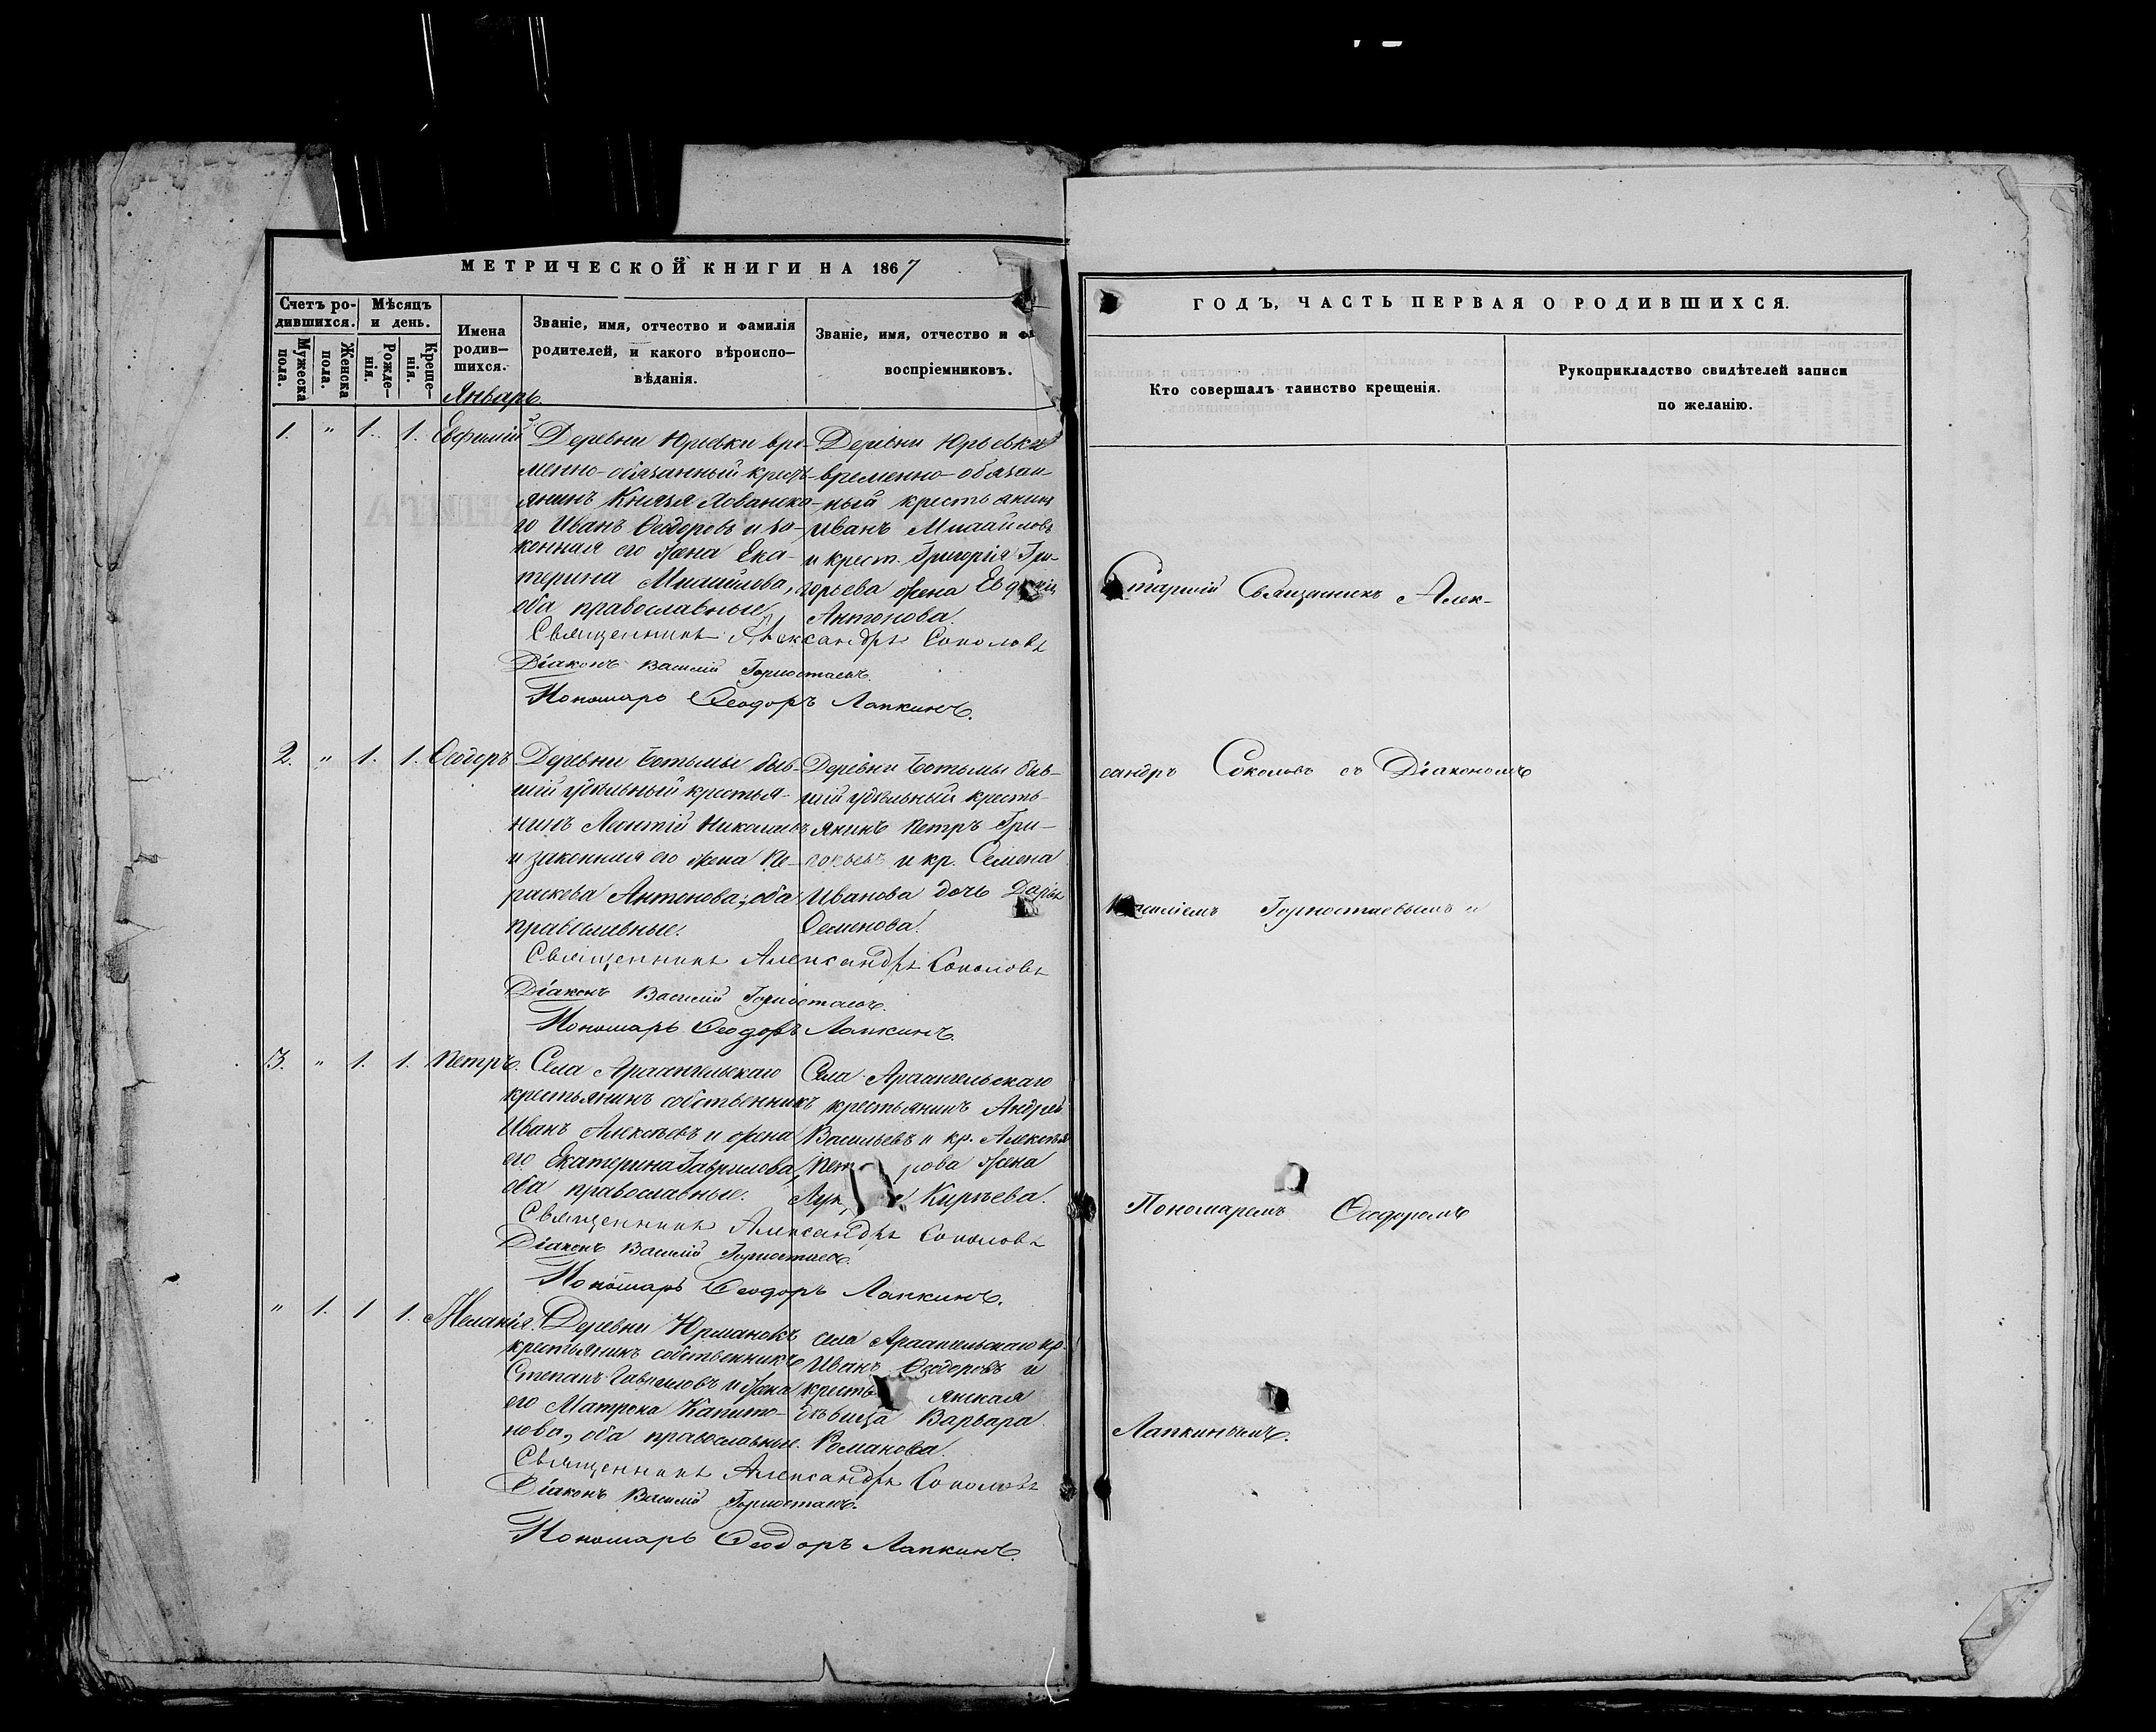 МЕТРИЧЕСКОЙ КНИГИ НА 1867
Счетъ ро-
дившихся.
Мѣсяцъ
и день.
Мужеска
пола.
Женска
пола.
Рожде-
нія.
Креще-
нія.
Имена
родив-
шихся.
Званіе, имя, отчество и фамилія
родителей, и какого вѣроиспо-
вѣданія.
Званіе, имя, отчество и
воспріемниковъ.
Январь.
1. " 1. 1. Евфимій
Деревни Юрьевки вре-
менно-обязанный кресть-
янинъ Князя
Иванъ Ѳеодоровъ и за-
конная его жена Ека-
терина Михайлова,
оба православные
Деревни Юрьевки
временно-обязан-
ный крестьянинъ
Иванъ Михайловъ
и крест. Григорія Гри-
горьева жена
Антонова.
Священникъ Александръ Соколовъ
Діаконъ Василій Горностаевъ.
Пономарь Ѳеодоръ Лапкинъ.
2. " 1. 1. Ѳеодоръ
Деревни Ботьмы быв-
шій удѣльный крестья-
нинъ Леонтій Николаевъ
и законная его жена Па-
раскева Антонова; оба
православные.
Деревни Ботьмы быв-
шій удѣльный кресть-
янинъ Петръ Гри-
горьевъ и кр. Семена
Иванова дочь Дарья
Семенова.
Священникъ Александръ Соколовъ
Діаконъ Василій Горностаевъ.
Пономарь Ѳеодоръ Лапкинъ.
3. " 1. 1. Петръ.
Села Архангельскаго
крестьянинъ собственникъ
Иванъ Алексѣевъ и жена
его Екатерина Гаврилова,
оба православные.
Села Архангельскаго
крестьянинъ Андрей
Васильевъ и кр. Алексѣя
Пет рова жена
Кирѣева.
Священникъ Александръ Соколовъ
Діаконъ Василій Горностаевъ.
Пономарь Ѳеодоръ Лапкинъ.
" 1. 1 1. Меланія.
Деревни Юрманокъ
крестьянинъ собственникъ
Степанъ Гавриловъ и жена
его Матрона Капито-
нова, оба православные.
села Архангельскаго кр.
Иванъ Ѳеодоровъ и
кресть янская
дѣвица Варвара
Романова.
Священникъ Александръ Соколовъ
Діаконъ Василій Горностаевъ.
Пономарь Ѳеодоръ Лапкинъ.
ГОДЪ, ЧАСТЬ ПЕРВАЯ О РОДИВШИХСЯ.
Кто совершалъ таинство крещенія.
Рукоприкладство свидѣтелей записи
по желанію.
Старшій Священникъ Алек-
сандръ Соколовъ съ Діакономъ
Василіемъ Горностаевымъ и
Пономаремъ Ѳеодоромъ
Лапкинымъ.